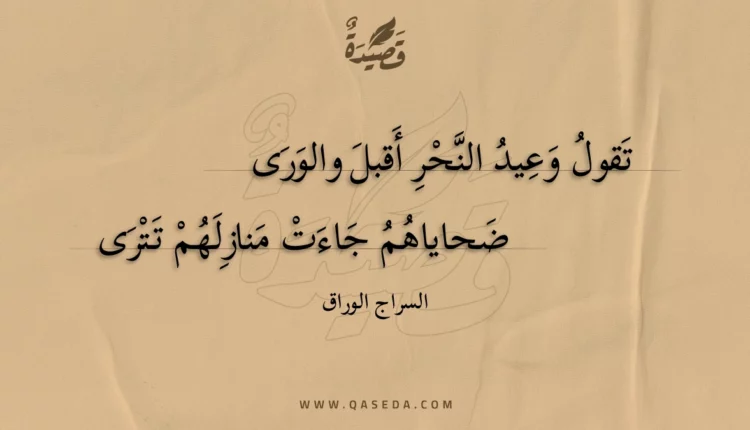 قَصِيْدَةٌ
تَقولُ وَعِيدُ النَّحْرِ أَقبلَ والوَرَى
ضَحاياهُمُ جَاءَتْ مَنازِلَهُمْ تَتْرَى
السراج الوراق
WWW.QASEDA.COM